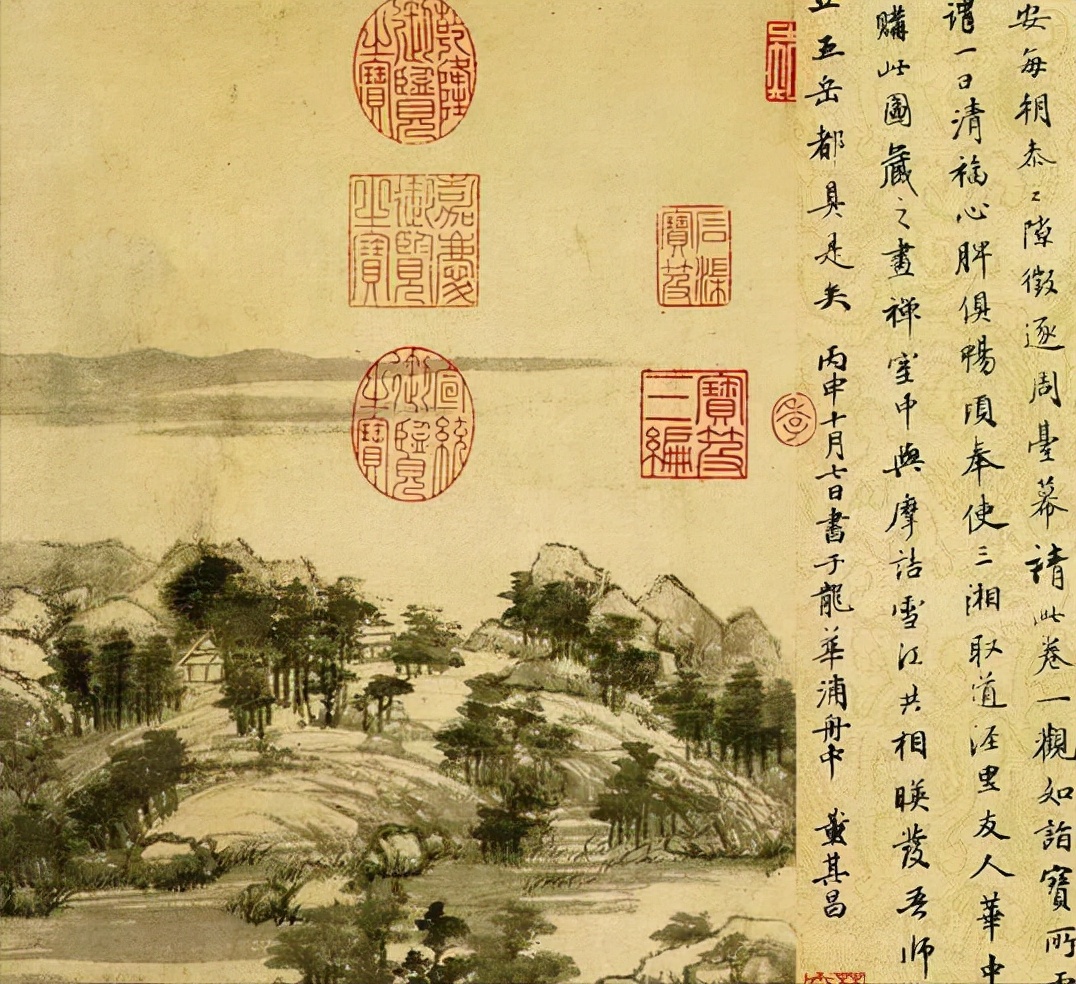 安每朝叅之隙徵逐周臺幕請此卷一觀如詣寶所
謂一日清福心脾俱暢頃奉使三湘取道涇里友人華中
購此圖藏之畫禪室中與摩詰雪江共相暎發吾師
五岳都具是矣 丙申十月七日書于龍華浦舟中 董其昌
石渠寶笈
寶笈三編
乾隆御覽之寶
嘉慶御覽之寶
宣統御覽之寶